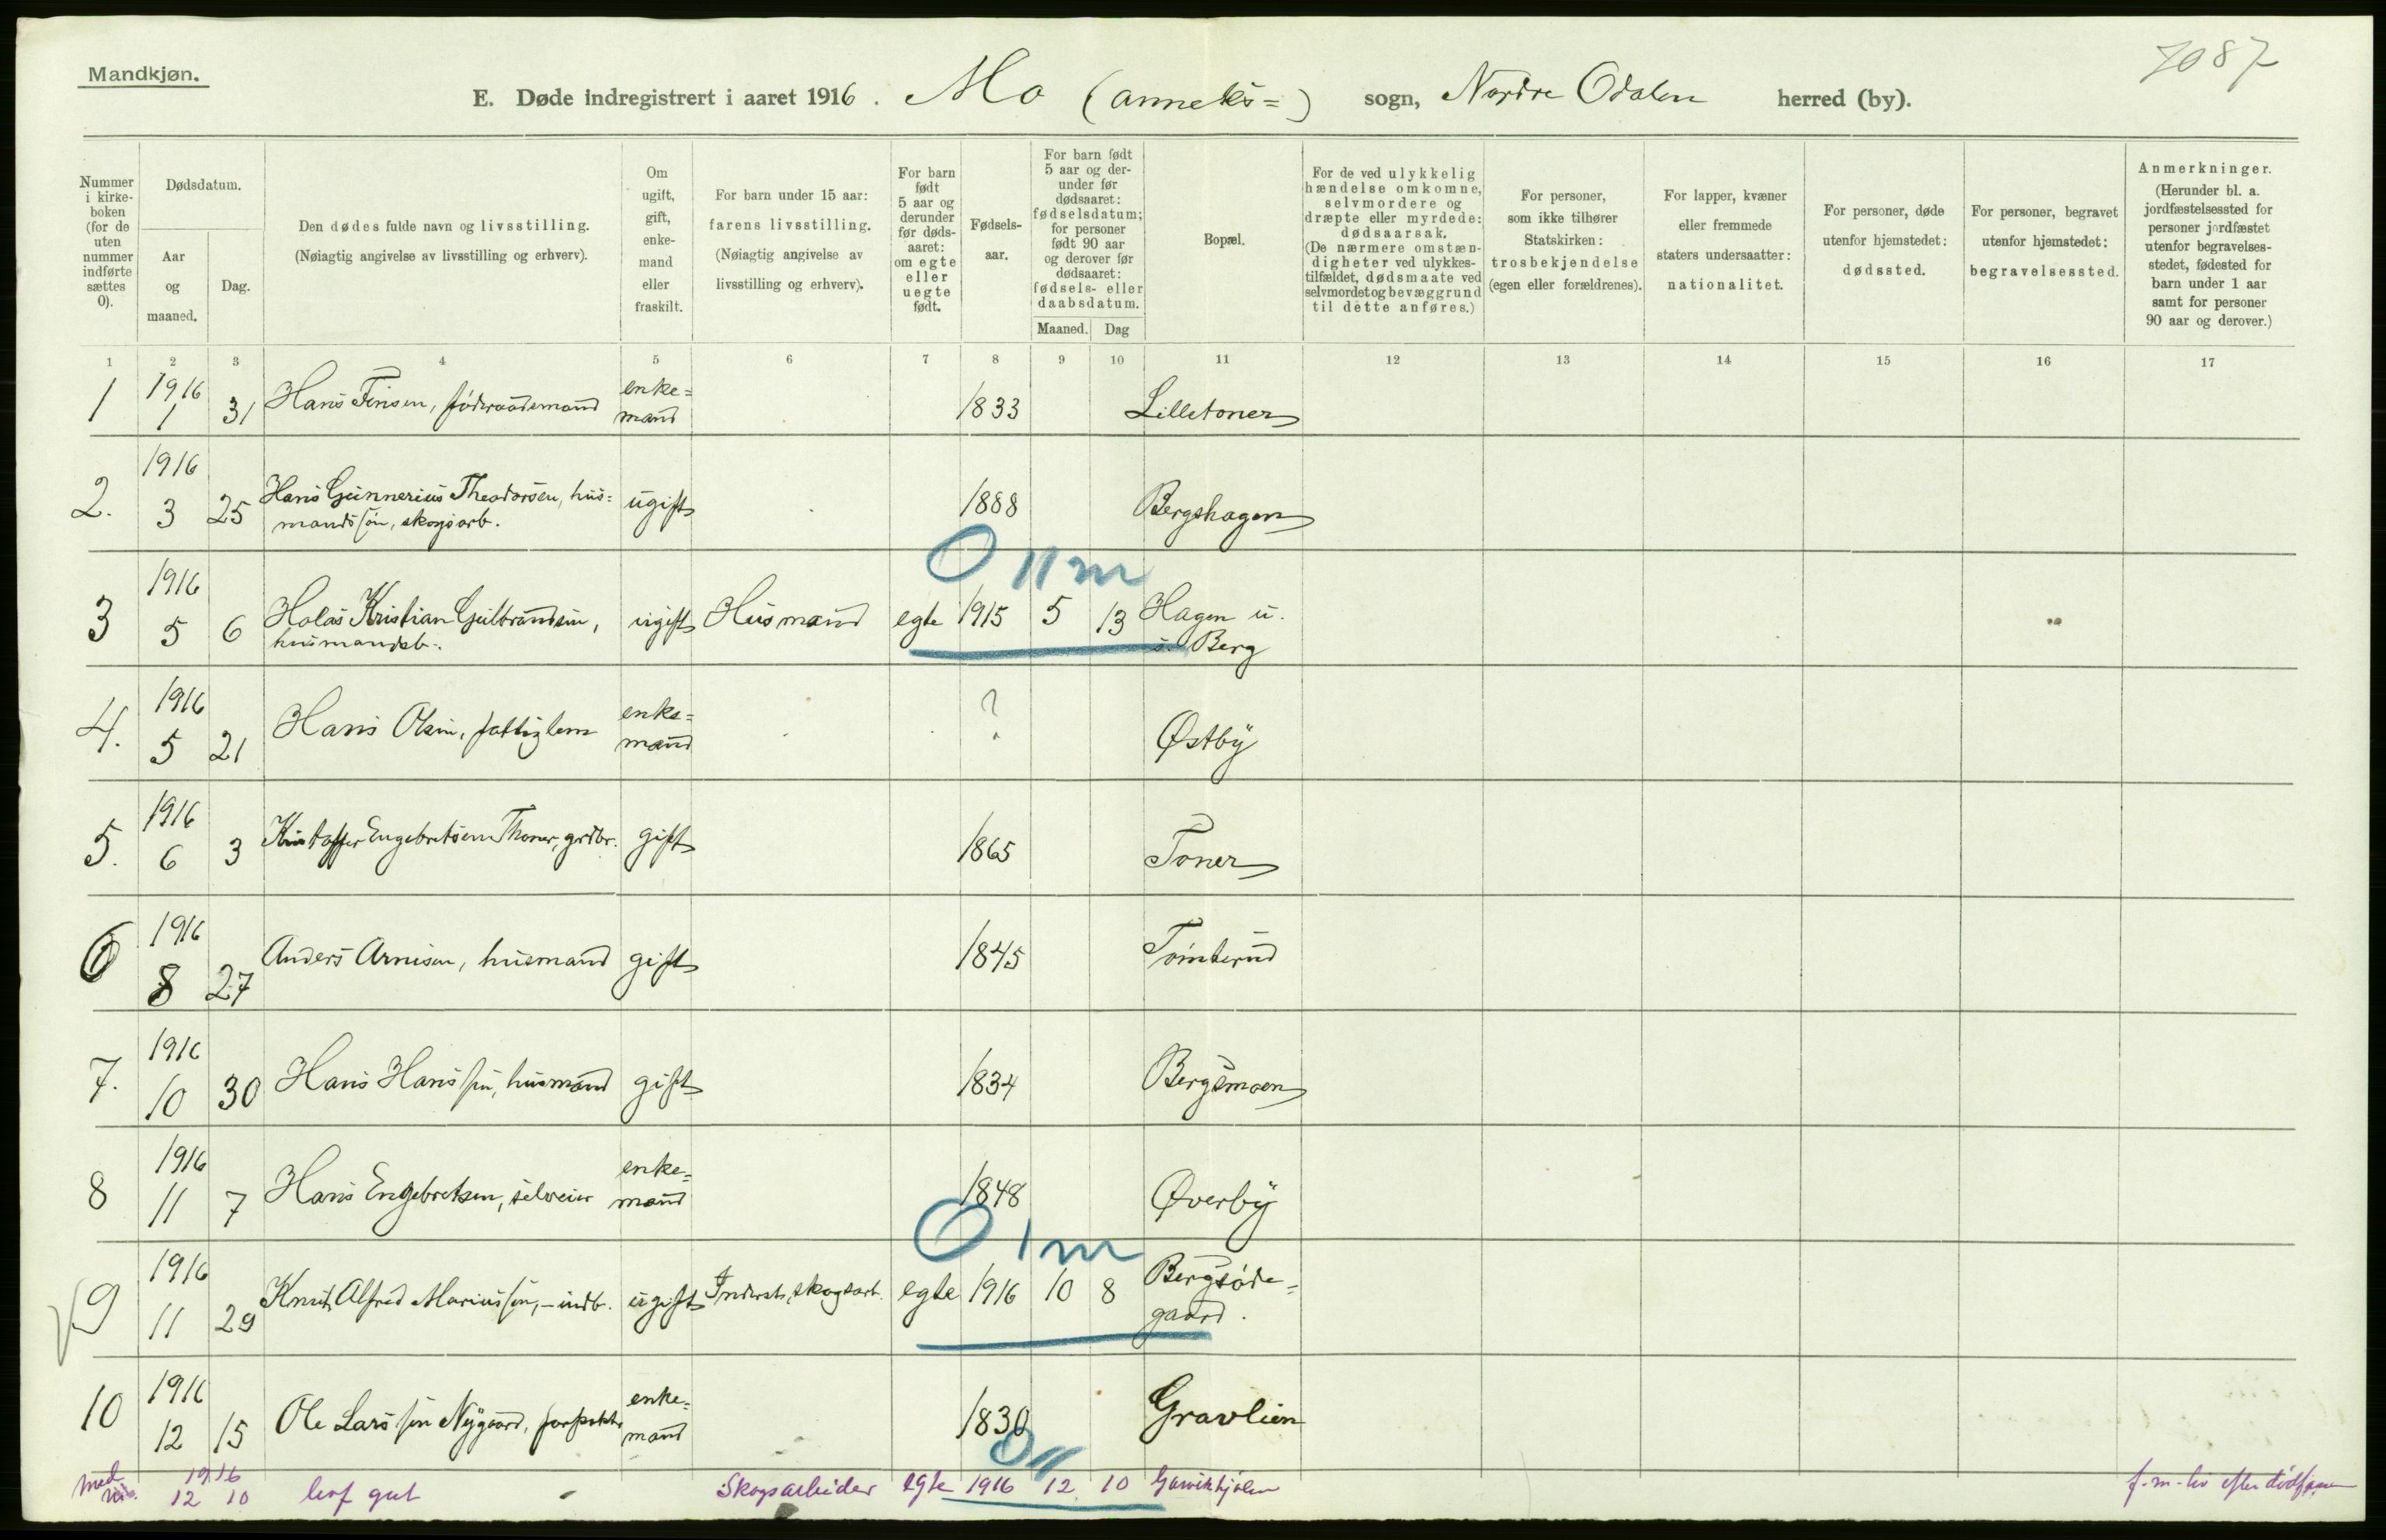 Mandkjøn.
7087
E. Døde indregistrert i aaret 1916. Mo (anneks=) sogn, Nordre Odalen herred (by).
Nummer i kirke-boken (for de uten nummer indførte sættes 0).
Dødsdatum.
Aar og maaned.
Dag.
Den dødes fulde navn og livsstilling.
(Nøiagtig angivelse av livsstilling og erhverv).
Om ugift, gift, enke-mand eller fraskilt.
For barn under 15 aar: farens livsstilling.
(Nøiagtig angivelse av livsstilling og erhverv).
For barn født 5 aar og derunder før døds-aaret: om egte eller uegte født.
Fødsels-aar.
For barn født 5 aar og der-under før dødsaaret: fødselsdatum; for personer født 90 aar og derover før dødsaaret: fødsels- eller daabsdatum.
Maaned. Dag
Bopæl.
For de ved ulykkelig hændelse omkomne, selvmordere og dræpte eller myrdede: dødsaarsak.
(De nærmere omstæn-digheter ved ulykkes-tilfældet, dødsmaate ved selvmordet og bevæggrund til dette anføres.)
For personer, som ikke tilhører Statskirken: trosbekjendelse (egen eller forældrenes).
For lapper, kvæner eller fremmede staters undersaatter: nationalitet.
For personer, døde utenfor hjemstedet: dødssted.
For personer, begravet utenfor hjemstedet: begravelsessted.
Anmerkninger.
(Herunder bl. a. jordfæstelsessted for personer jordfæstet utenfor begravelses-stedet, fødested for barn under 1 aar samt for personer 90 aar og derover.)
1 2 3 4 5 6 7 8 9 10 11 12 13 14 15 16 17
1 1916 1 31 Hans Finsen, føderaadsmand enke=mand 1833 Lilletoner
2. 1916 3 25 Hans Gunnerius Theodorsen, hus=
mandssøn, skogsarb. ugift 1888 Bergshagen
0 11 m
3 1916 5 6 Kristian Gulbrandsen, ugift Husmand egte 1915 5 13 Hagen u.
husmandsb. s. Berg
4. 1916 5 21 Hans Olsen, fattiglem enke=mand ? Østby
5. 1916 6 3 Kristoffer Engebretsen Thoner, grdbr. gift 1865 Toner
6 1916 8 27 Anders Arnesen, husmand gift 1845 Tømterud
7. 1916 10 30 Hans Hanssen, husmand gift 1834 Bergsmoen
8 1916 11 7 Hans Engebretsen, selveier enke=mand 1848 Øverby
0 1 m
9 1916 11 29 Knut Alfred Mariussen, - indb. ugift Inderst, skogsarb. egte 1916 10 8 Bergsøde=
gaard.
10 1916 12 15 Ole Larssen Nygaard, enke=mand 1830 Gravlien
0 11
1916 12 10 gut Skogsarbeider egte 1916 12 10